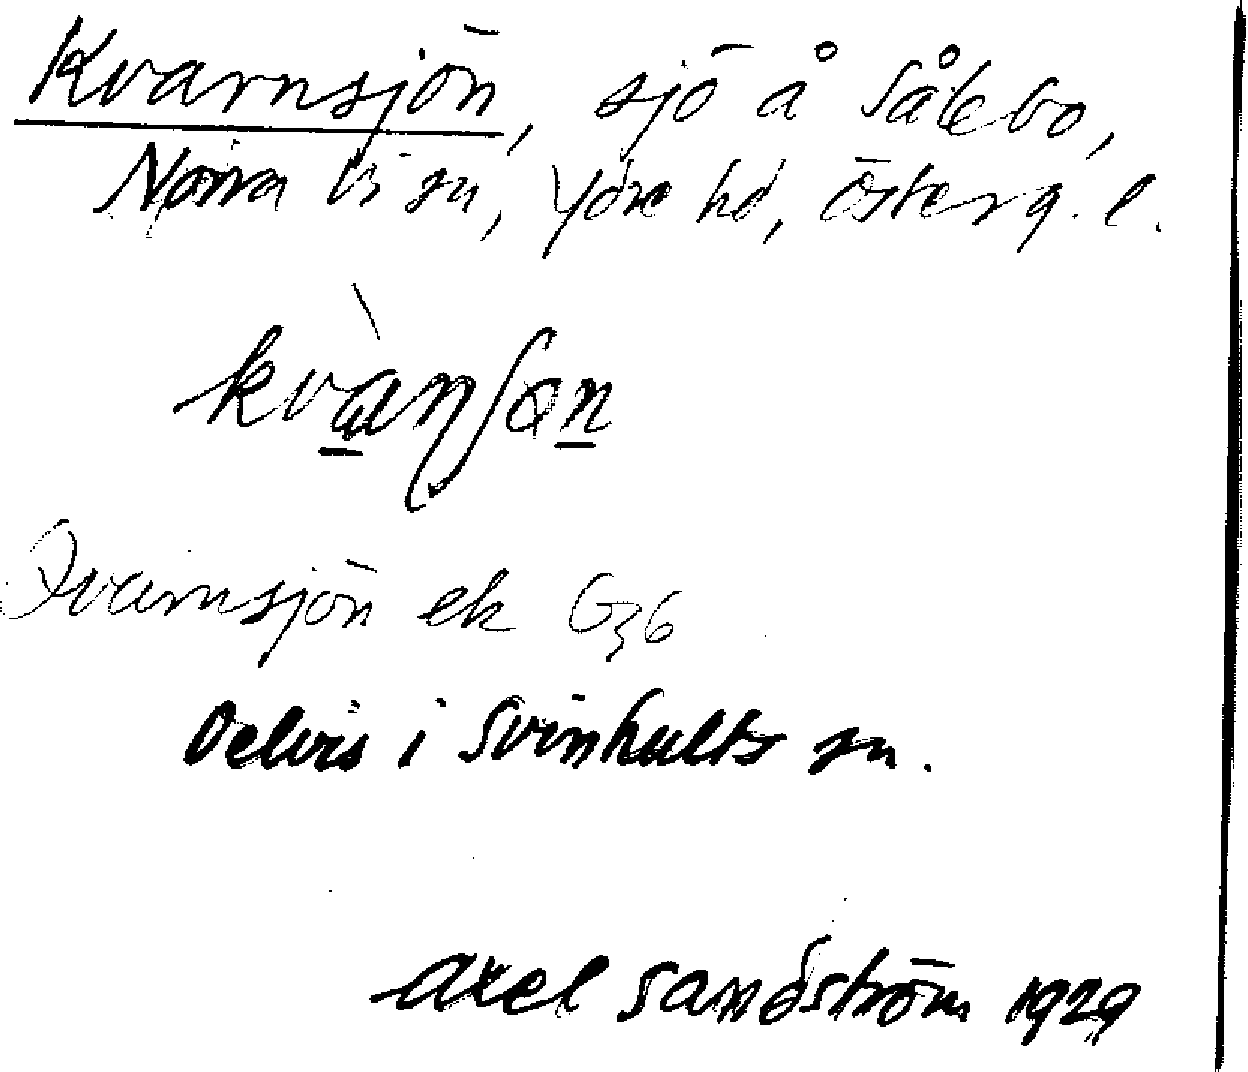 Kvarnsjön, sjö å Sålebo,
Norra Vi sn, Ydre hd, Österg. l.
kvànʃọn
Qvarnsjön ek G36
Delvis i Svinhults sn.
Axel Sandström 1929